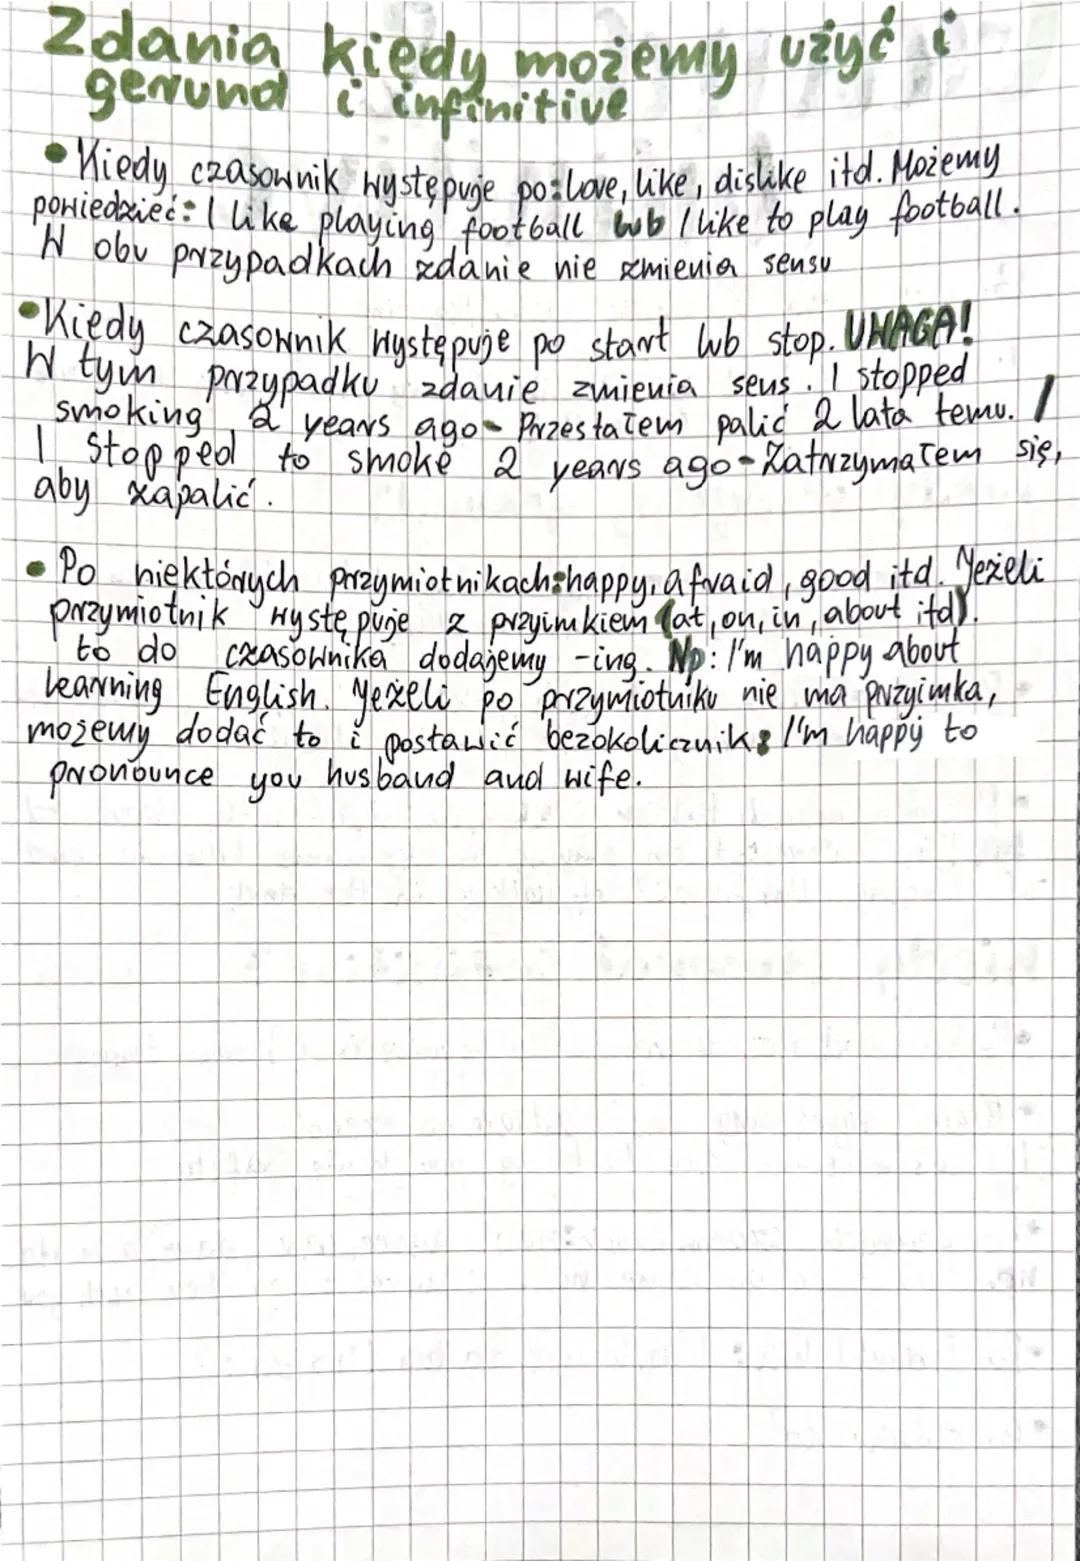 Zdania kiędy możemy użyć i
gerund i infinitive
• Kiedy czasownik występuje po: love, like, dislike itd. Możemy
powiedzieć: I like playing football lub I like to play football.
W obu przypadkach zdanie nie zmienia sensu
• Kiędy czasownik występuje po start lub stop. UWAGA!
W tym przypadku zdanie zmienia sens. I stopped
smoking 2 years ago - Przestałem palić 2 lata temu. /
I stopped to smoke 2 years ago - Zatrzymałem się,
aby zapalić.
• Po niektórych przymiotnikach: happy, afraid, good itd. Jeżeli
przymiotnik występuje z przyimkiem (at, on, in, about itd).
to do czasownika dodajemy -ing. Np: I'm happy about
learning English. Jeżeli po przymiotniku nie ma przyimka,
możemy dodać to i postawić bezokolicznik: I'm happy to
pronounce you husband and wife.